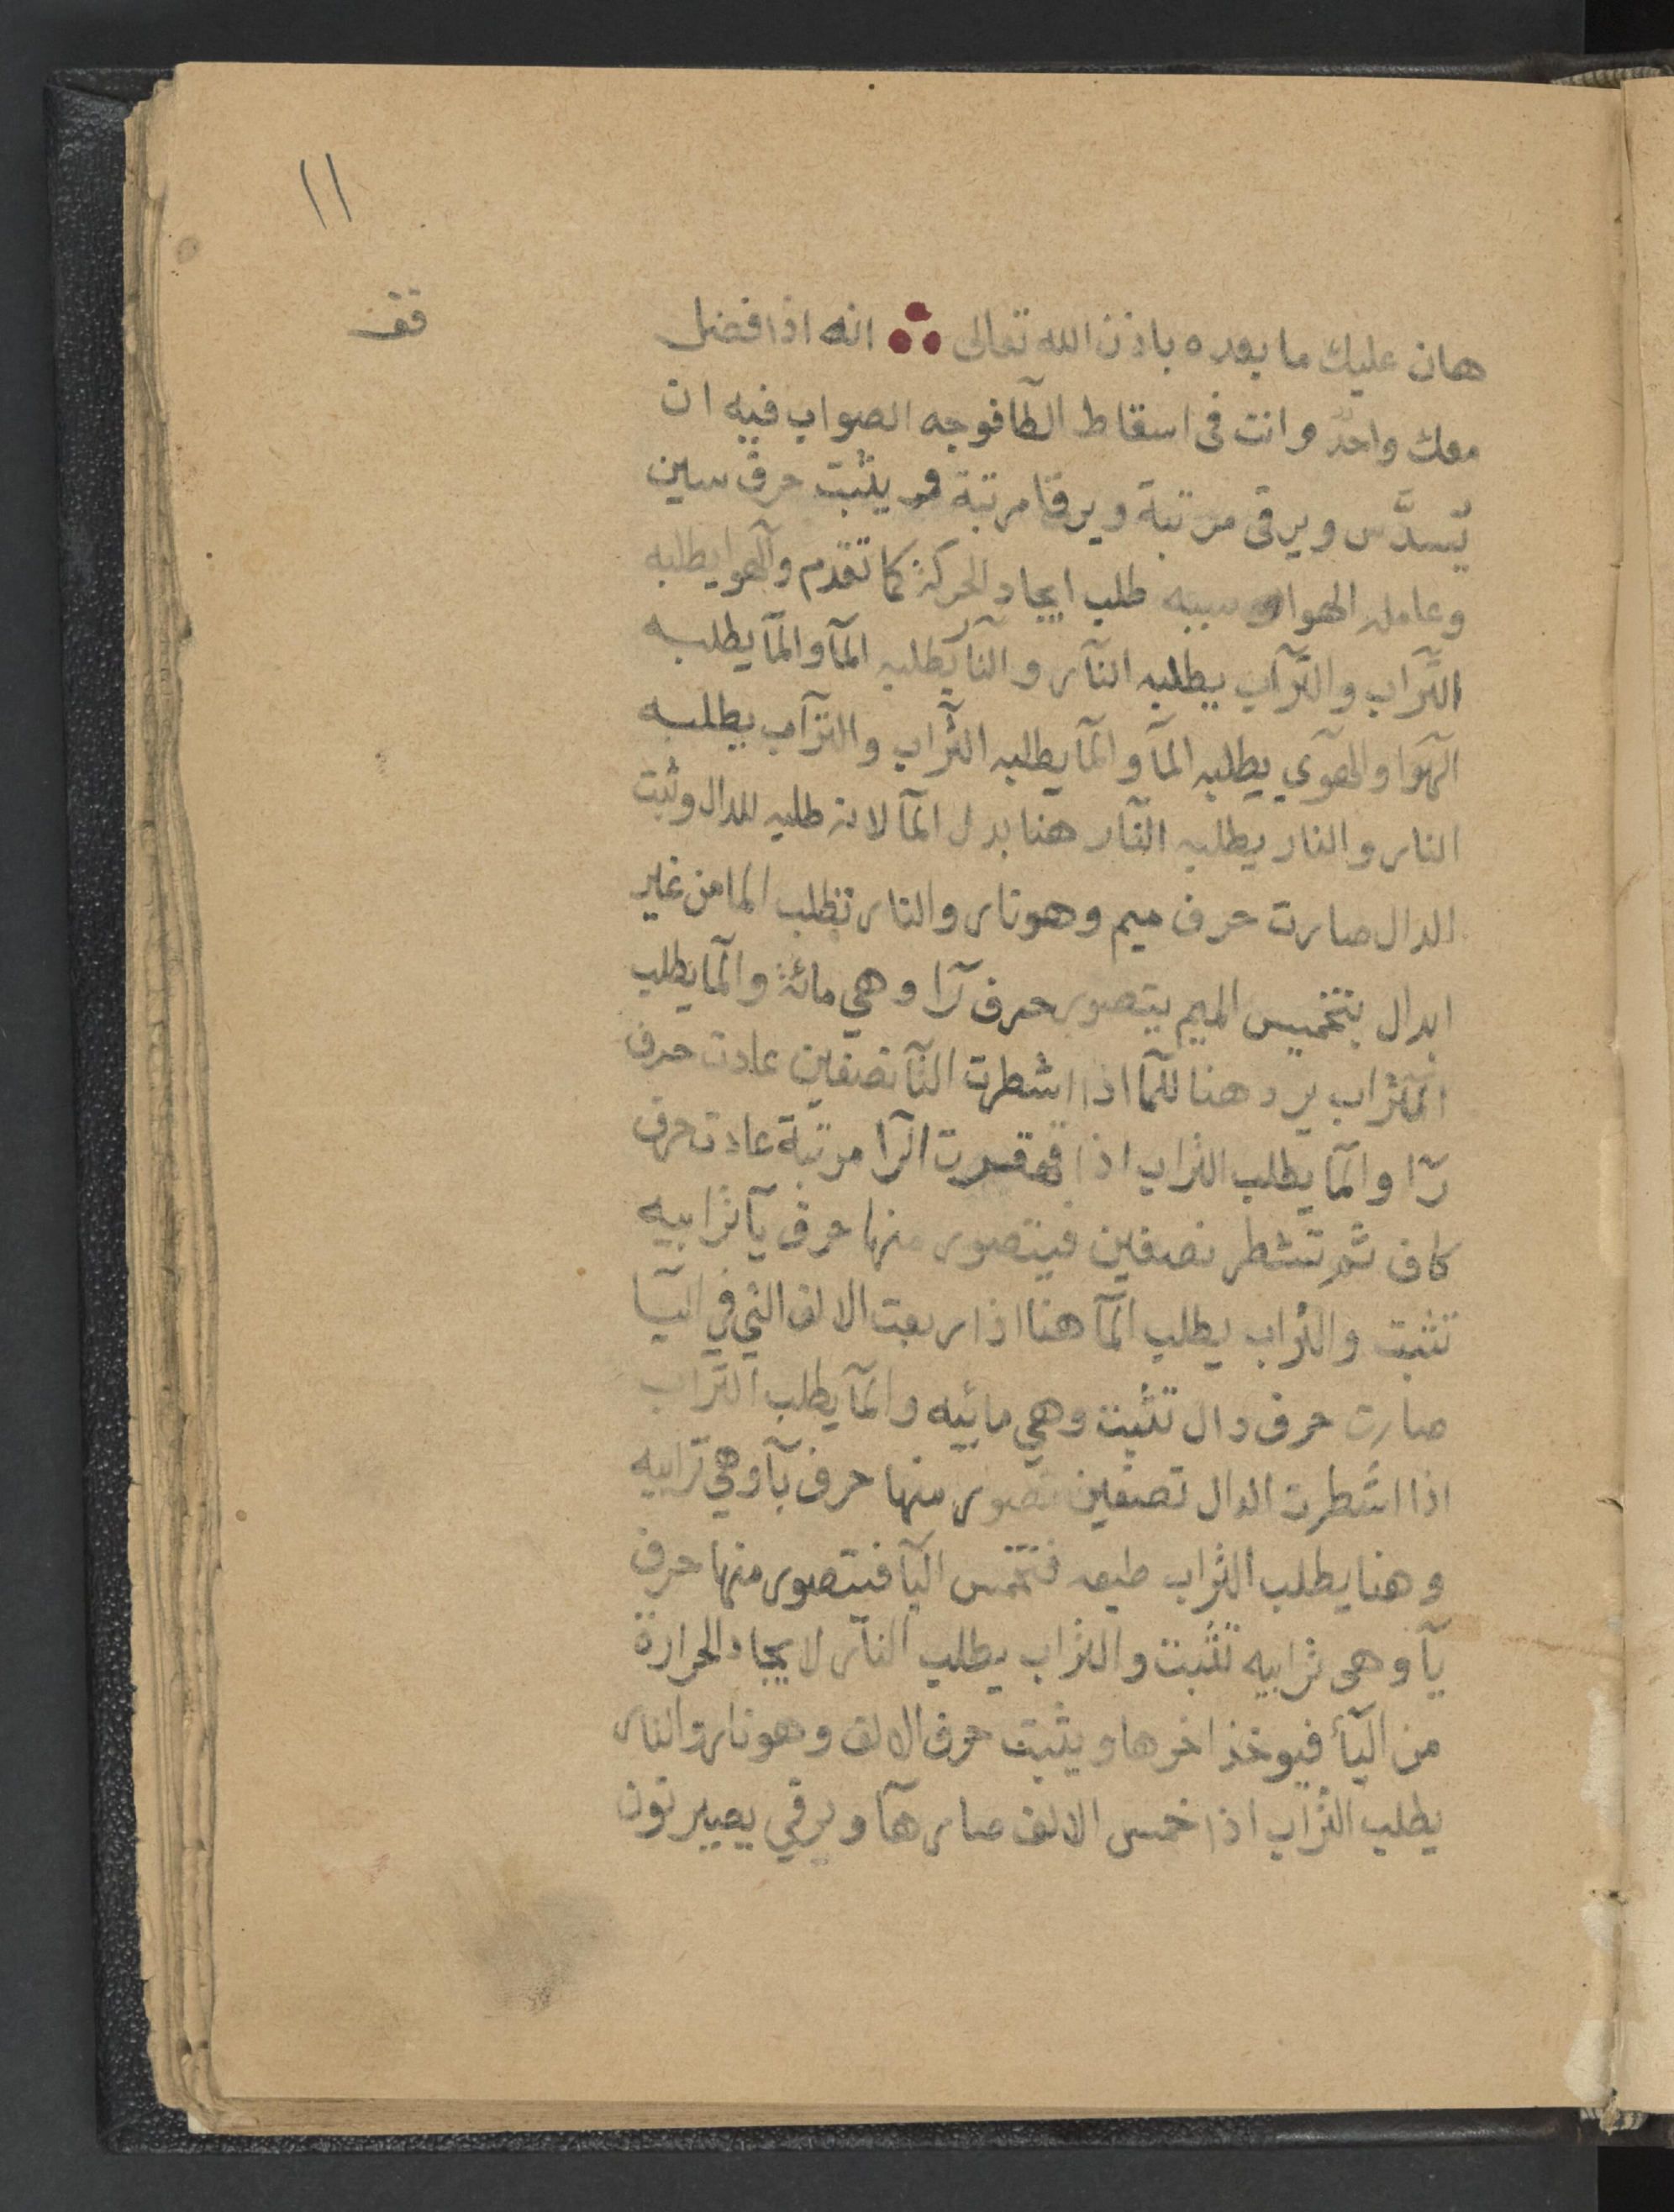 ١١
قف
هان عليك ما بعده باذن الله تعالى انه اذا فضل
معك واحد وانت فى اسقاط الطآ فوجه الصواب فيه ان
يُسدَّس ويرقى مرتبة ويرقا مرتبة و يثبت حرف سين
وعامله الهوا وسببه طلب ايجاد الحركة كما تقدم والهوا يطلبه
التَّراب والتَّراب يطلبه النآر والنآر يطلبه المآ والمآ يطلبه
الهوا والهوى يطلبه المآ والمآ يطلبه التراب والتراب يطلبه
النار والنار يطلبه النآر هنا بدل المآ لانه طلبه للدال وثبت
الدال صارت حرف ميم وهو نار والنار تطلب الما من غير
ابدال بتخميس الميم يتصور حرف رآ وهي مائة والمآ يطلب
التراب يرد هنا للمآ اذا اشطرت النآ نصفين عادت حرف
رآ والمآ يطلب التراب اذا قهقرت الرآ مرتبة عادت حرف
كاف ثم تشطر نصفين فيتصور منها حرف يآ ترابيه
تثبت والتراب يطلب المآ هنا اذا ربعت الالف التي في اليآ
صارت حرف دال تثبت وهي مائيه والمآ يطلب التراب
اذا اشطرت الدال نصفين تصور منها حرف بآ وهي ترابيه
وهنا يطلب التراب طبعه فتخمس البآ فيتصور منها حرف
يآ وهى ترابيه تثبت والتراب يطلب النآر لايجاد الحرارة
من اليآ فيوخذ اخرها ويثبت حرف الالف وهو نار والنار
يطلب التراب اذا خمس الالف صار هآ ويرقي يصير نون